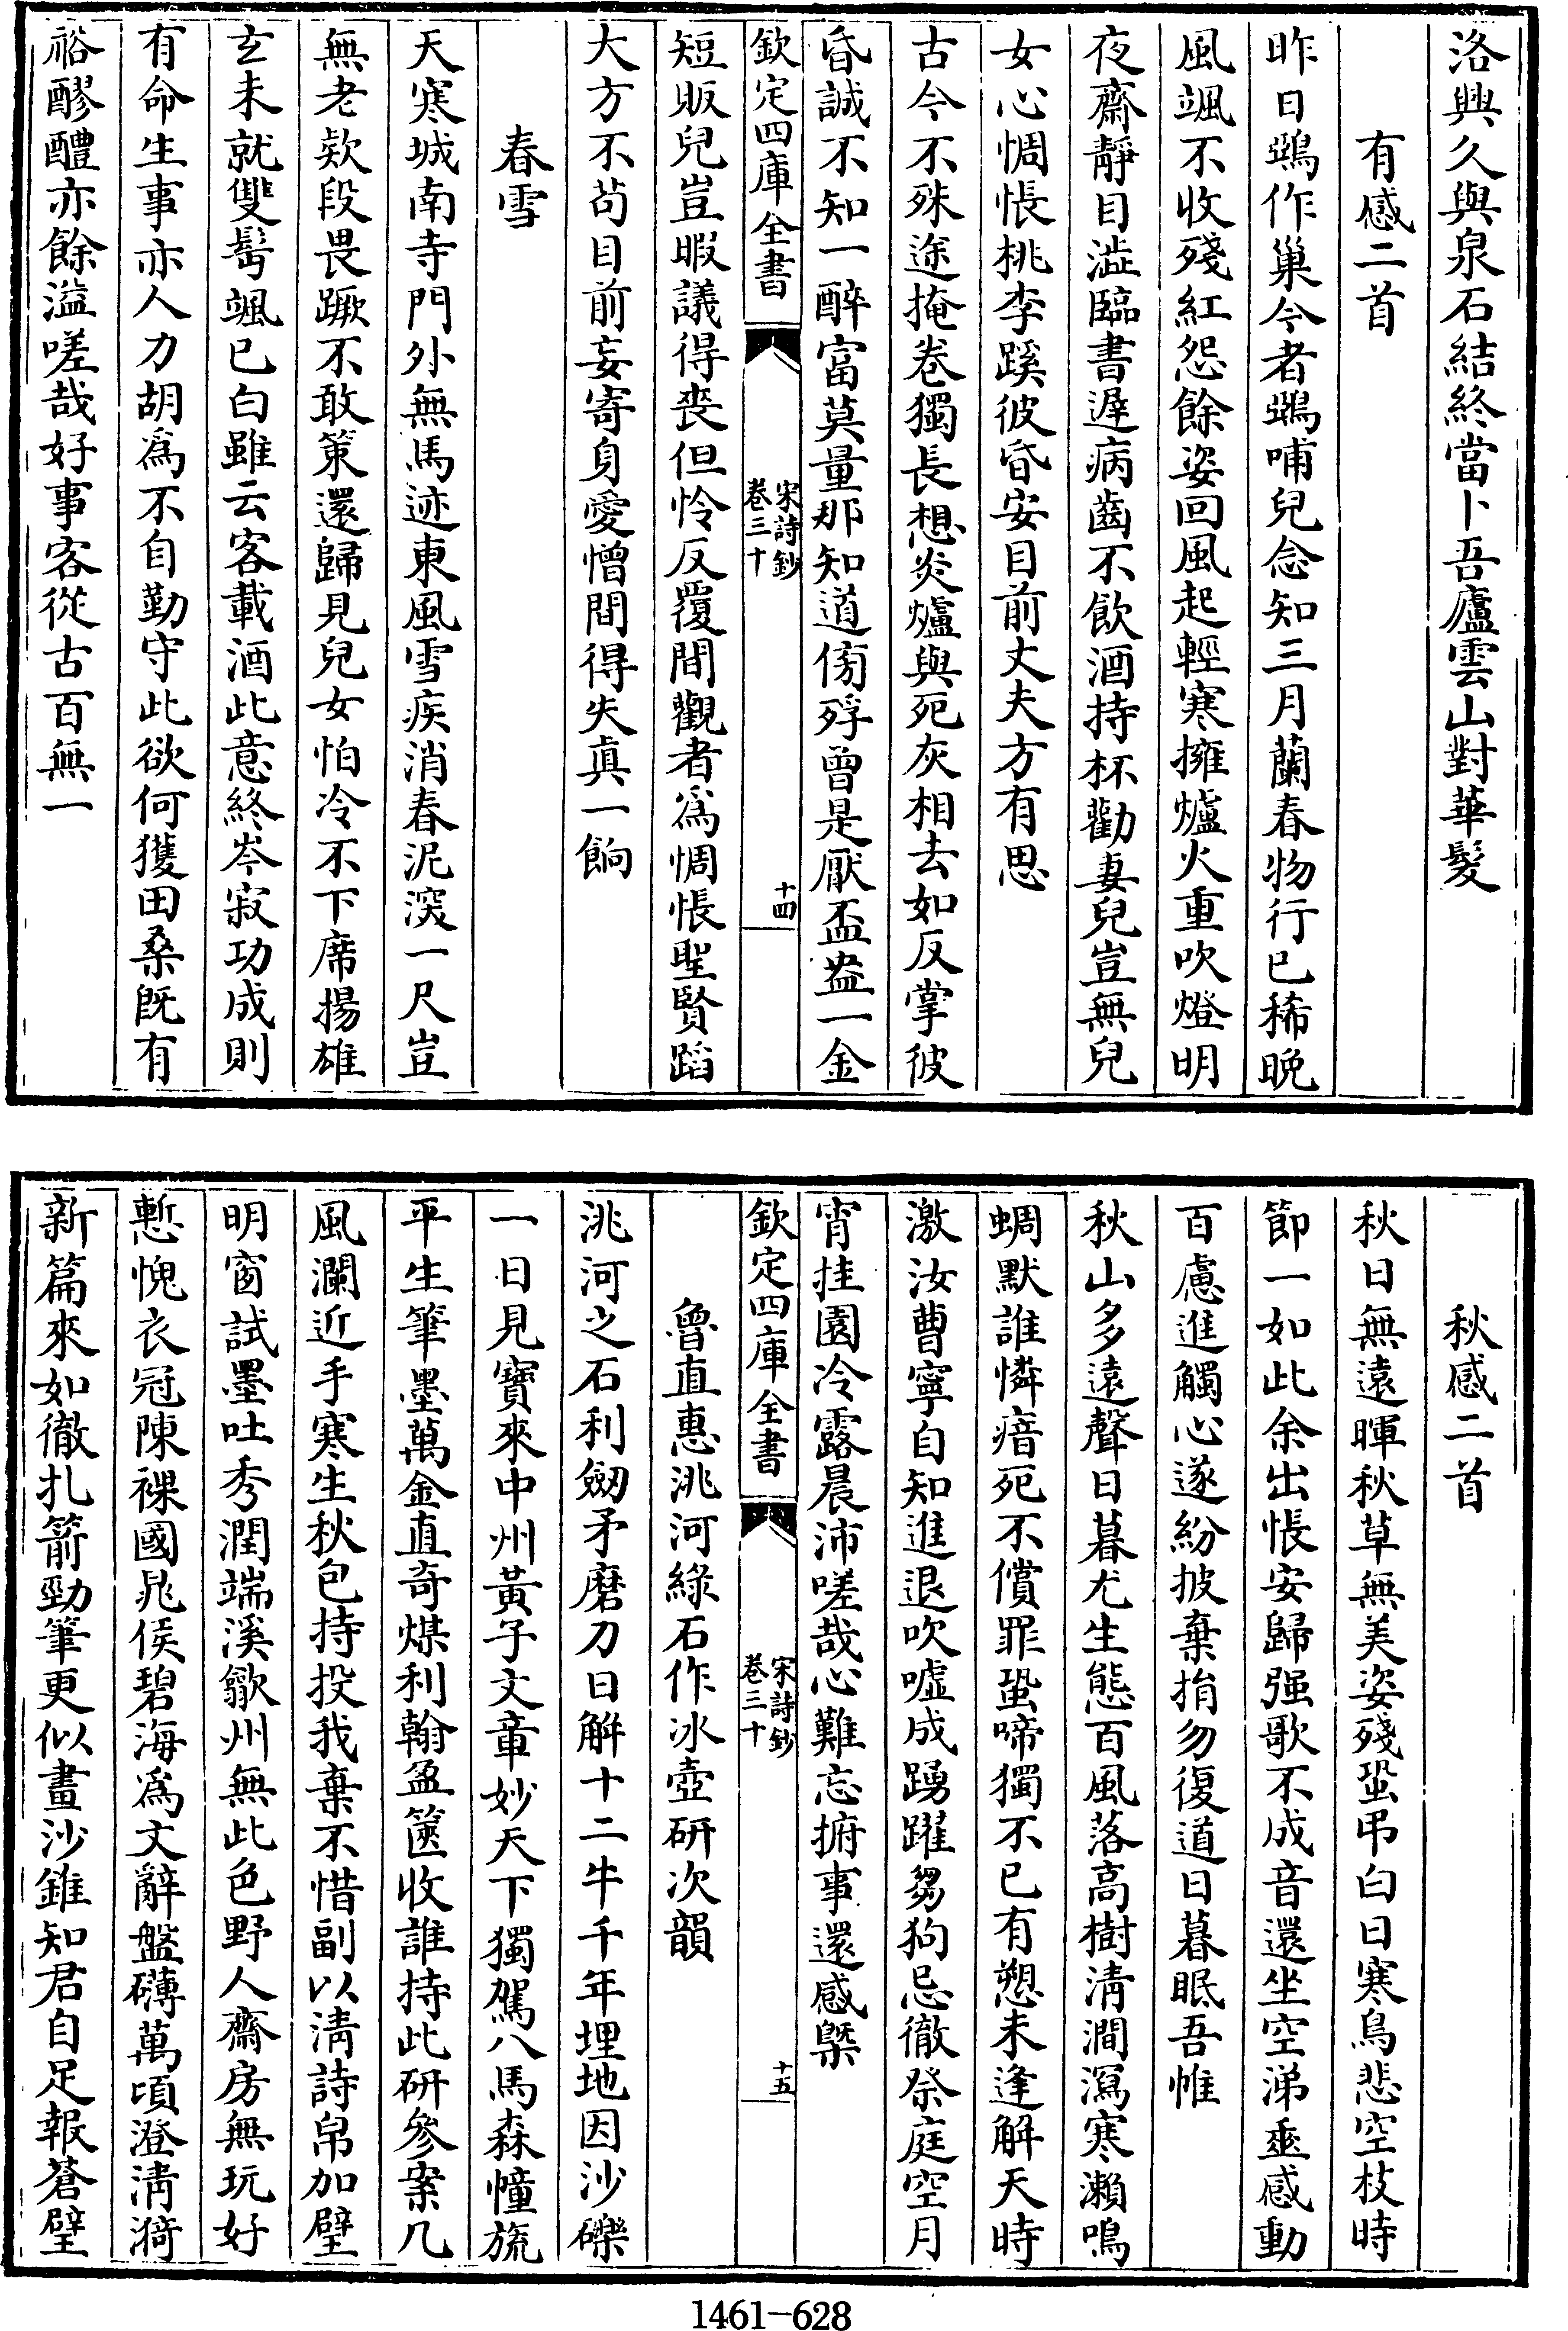 洛興久與泉石結終當卜吾廬雲山對華髮
有感二首
昨日鵶作巢今者鵶哺兒念知三月蘭春物行已稀晚
風颯不收殘紅怨餘姿回風起輕寒擁爐火重吹燈明
夜齋靜目澁臨書遲病齒不飲酒持杯勸妻兒豈無兒
女心惆悵桃李蹊彼昏安目前丈夫方有思
古今不殊途掩卷獨長想炎爐與死灰相去如反掌彼
昏誠不知一醉富莫量那知道傍殍曾是厭盃盎一金
欽定四庫全書
宋詩鈔
卷三十
十四
短販兒豈暇議得喪但怜反覆間觀者爲惆悵聖賢蹈
大方不苟目前妄寄身愛憎間得失真一餉
春雪
天寒城南寺門外無馬迹東風雪疾消春泥深一尺豈
無老欵段畏蹶不敢策還歸見兒女怕冷不下席揚雄
玄未就雙髩颯已白雖云客載酒此意終岑寂功成則
有命生事亦人力胡爲不自勤守此欲何獲田桑旣有
裕醪醴亦餘溢嗟哉好事客從古百無一
秋感二首
秋日無遠暉秋草無美姿殘蛩弔白日寒鳥悲空枝時
節一如此余出悵安歸强歌不成音還坐空涕垂感動
百慮進觸心遂紛披棄捐勿復道日暮眠吾帷
秋山多遠聲日暮尤生態百風落高樹清澗瀉寒瀨鳴
蜩默誰憐瘖死不償罪蛩啼獨不已有愬未逢解天時
激汝曹寧自知進退吹嘘成踴躍芻狗忌徹祭庭空月
宵挂園冷露晨沛嗟哉心難忘撫事還感槩
欽定四庫全書
宋詩鈔
卷三十
十五
魯直惠洮河綠石作冰壺研次韻
洮河之石利劒矛磨刀日解十二牛千年埋地因沙礫
一日見寶來中州黃子文章妙天下獨駕八馬森幢旒
平生筆墨萬金直奇煤利翰盈篋收誰持此研參案几
風瀾近手寒生秋包持投我棄不惜副以清詩帛加璧
明窗試墨吐秀潤端溪歙州無此色野人齋房無玩好
慙愧衣冠陳裸國晁侯碧海爲文辭盤礴萬頃澄清漪
新篇來如徹扎箭勁筆更似畫沙錐知君自足報蒼璧
1461-628